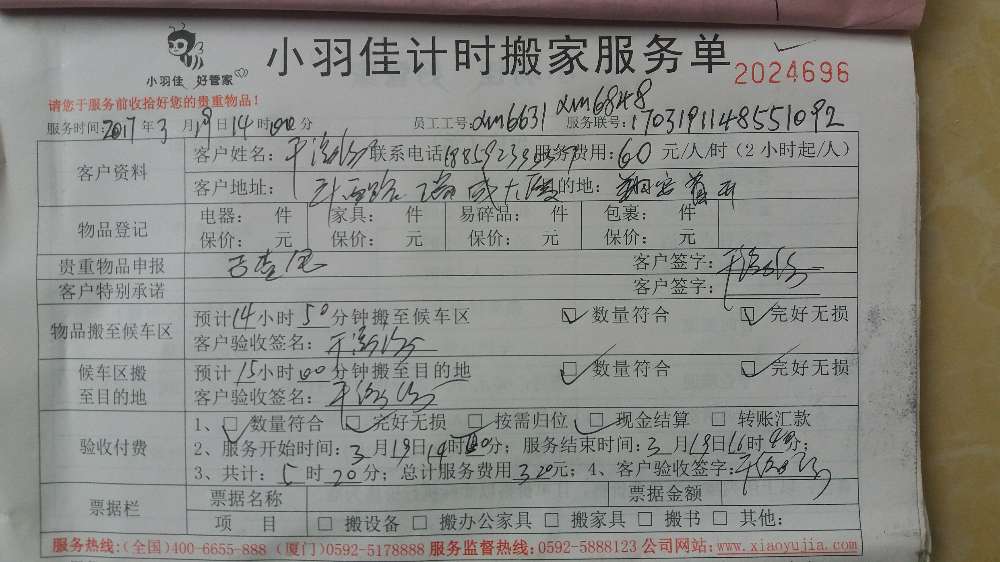 小羽佳计时搬家服务单
小羽佳 好管家
2024696
请您于服务前收拾好您的贵重物品!
服务时间: 2017年3月19日14时 分 员工工号: xm6631 xm6848 服务联号: 1703191148551092
客户资料
客户姓名: 联系电话 服务费用: 60 元/人/时 (2小时起/人)
客户地址: 大厦 目的地:
物品登记
电器: 件 家具: 件 易碎品: 件 包裹: 件
保价: 元 保价: 元 保价: 元 保价: 元
贵重物品申报 客户签字:
客户特别承诺 客户签字:
物品搬至候车区
预计14小时50分钟搬至候车区 数量符合 完好无损
客户验收签名:
候车区搬
至目的地
预计15小时00分钟搬至目的地 数量符合 完好无损
客户验收签名:
验收付费
1、 数量符合 完好无损 按需归位 现金结算 转账汇款
2、服务开始时间: 3月19日14时 分; 服务结束时间: 3月19日16时 分;
3、共计: 5时20分; 总计服务费用320元; 4、客户验收签字:
票据栏
票据名称 票据金额
项 目 搬设备 搬办公家具 搬家具 搬书 其他:
服务热线:(全国)400-6655-888 (厦门)0592-5178888 服务监督热线:0592-5888123 公司网站:www.xiaoyujia.com